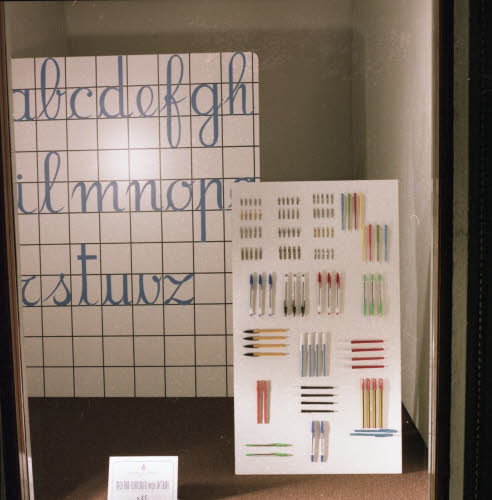 abcdefgh
ilmnopq
rstuvz